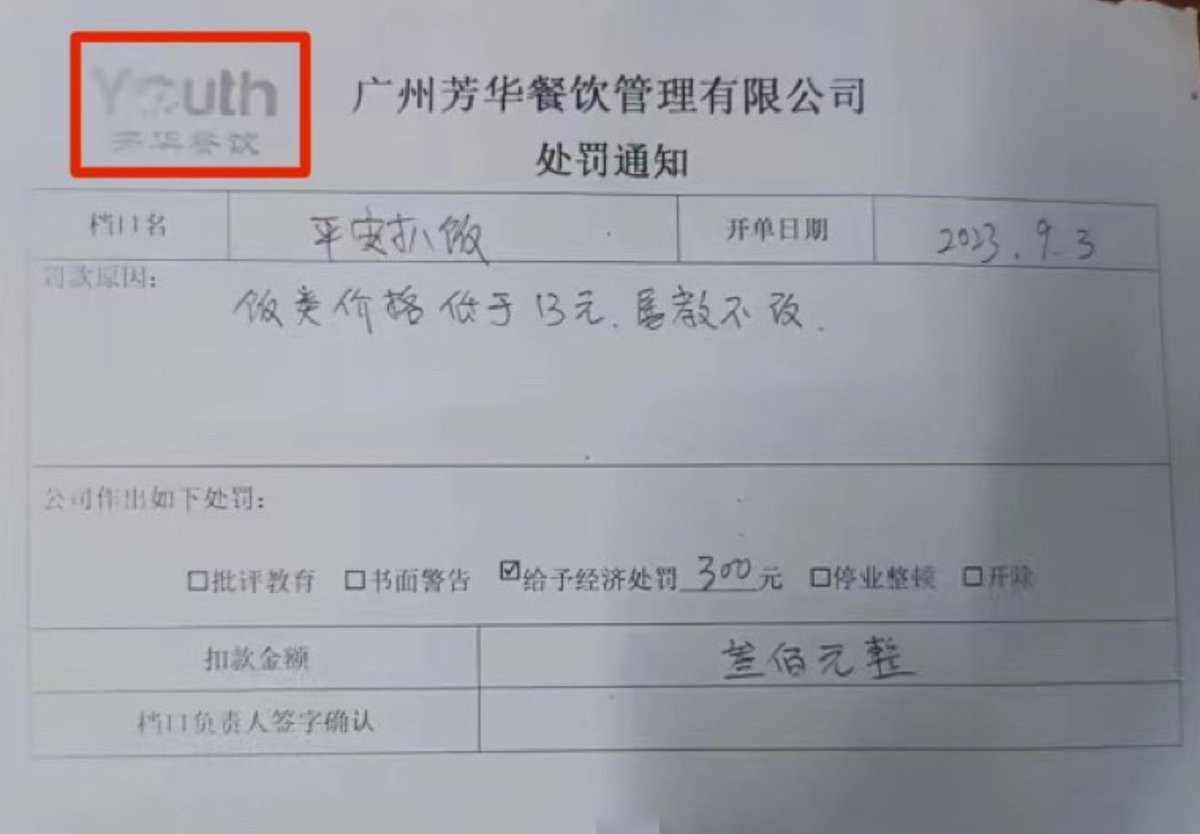 Youth
芳华餐饮
广州芳华餐饮管理有限公司
处罚通知
档口名 平安扒饭 开单日期 2023.9.3
罚款原因:
饭类价格低于13元、屡教不改.
公司作出如下处罚:
□批评教育 □书面警告 ☑给予经济处罚300元 □停业整顿 □开除
扣款金额 叁佰元整
档口负责人签字确认